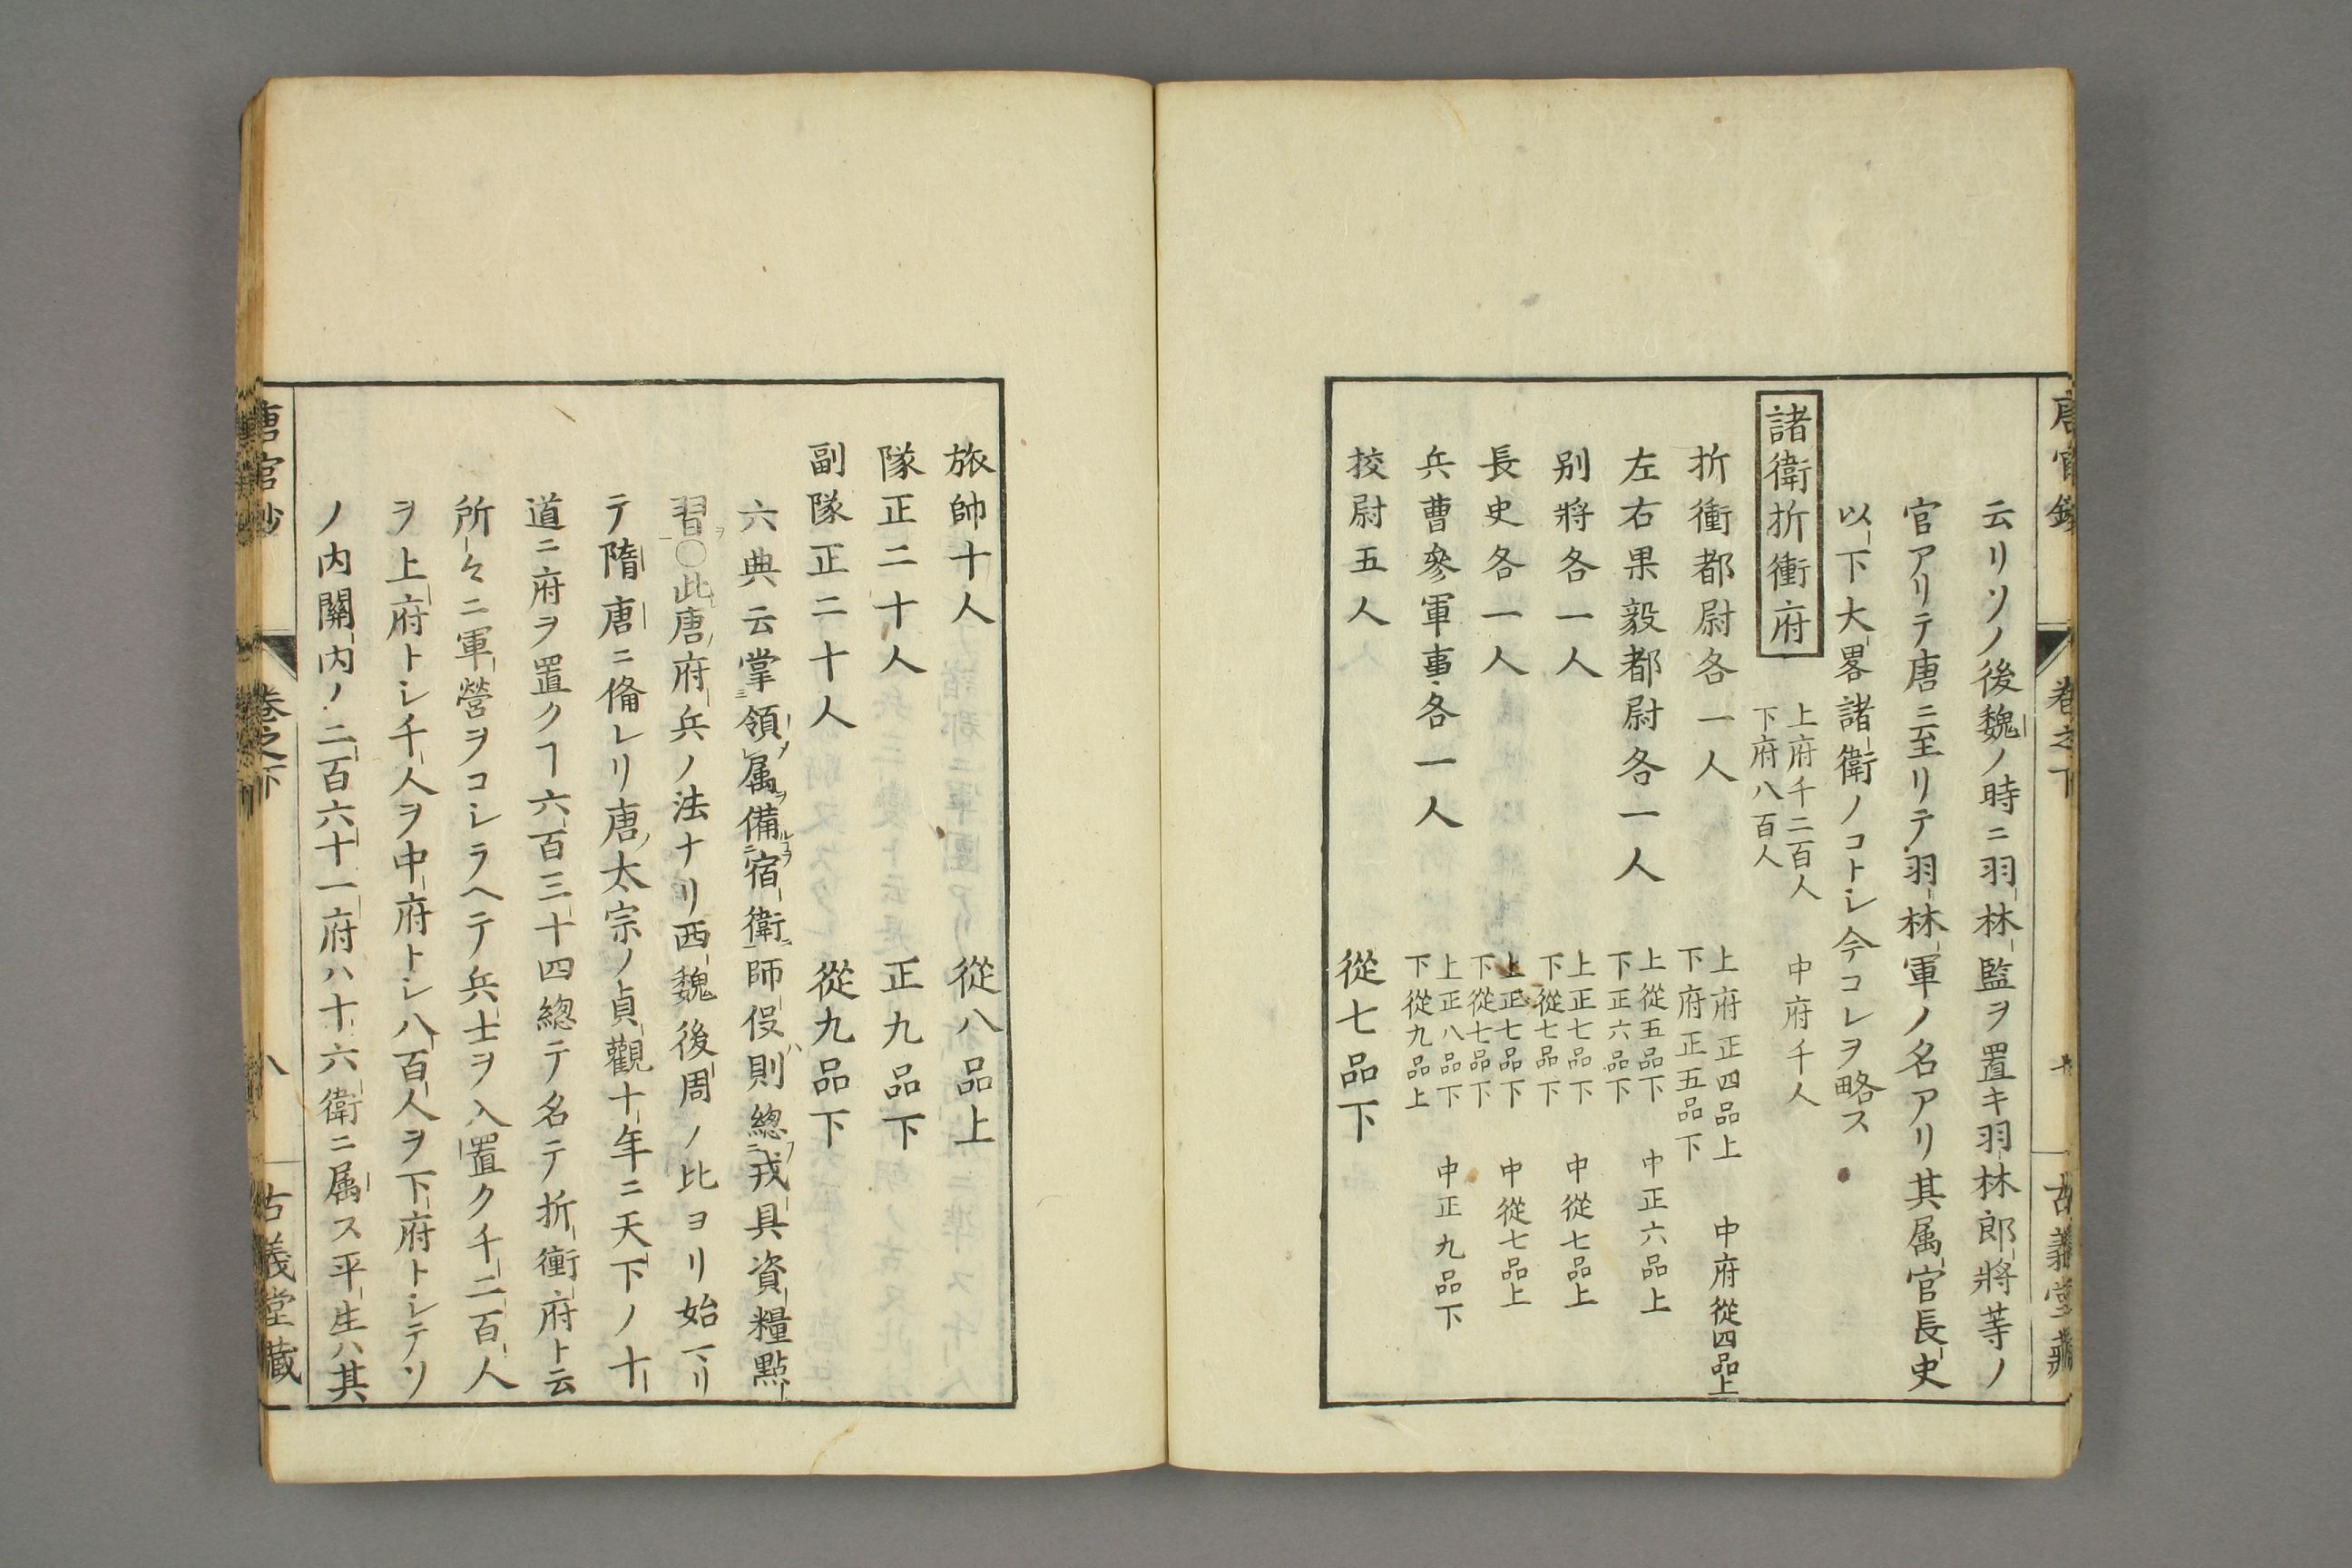 云リソノ後魏ノ時ニ羽林監ヲ置キ羽林郎將等ノ
官アリテ唐ニ至リテ羽林軍ノ名アリ其属官長史
以下大畧諸衛ノコトシ今コレヲ略ス
諸衛折衝府
上府千二百人 中府千人
下府八百人
折衝都尉各一人
上府正四品上 中府從四品上
下府正五品下
左右果毅都尉各一人
上從五品下 中正六品上
下正六品下
別將各一人
上正七品下 中從七品上
下從七品下
長史各一人
上正七品下 中從七品上
下從七品下
兵曹參軍事各一人
上正八品下 中正九品下
下從九品上
挍尉五人 從七品下
旅帥十人 從八品上
隊正二十人 正九品下
副隊正二十人 從九品下
六典云掌領属備宿衛師役則總戎具資糧點
習〇此唐府兵ノ法ナリ西魏後周ノ比ヨリ始マリ
テ隋唐ニ備レリ唐太宗ノ貞觀十年ニ天下ノ十
道ニ府ヲ置クヿ六百三十四總テ名テ折衝府ト云
所々ニ軍營ヲコシラヘテ兵士ヲ入置ク千二百人
ヲ上府トシ千人ヲ中府トシ八百人ヲ下府トシテソ
ノ内關内ノ二百六十一府ハ十六衛ニ属ス平生ハ其
唐官鈔 卷之下 八 古義堂藏